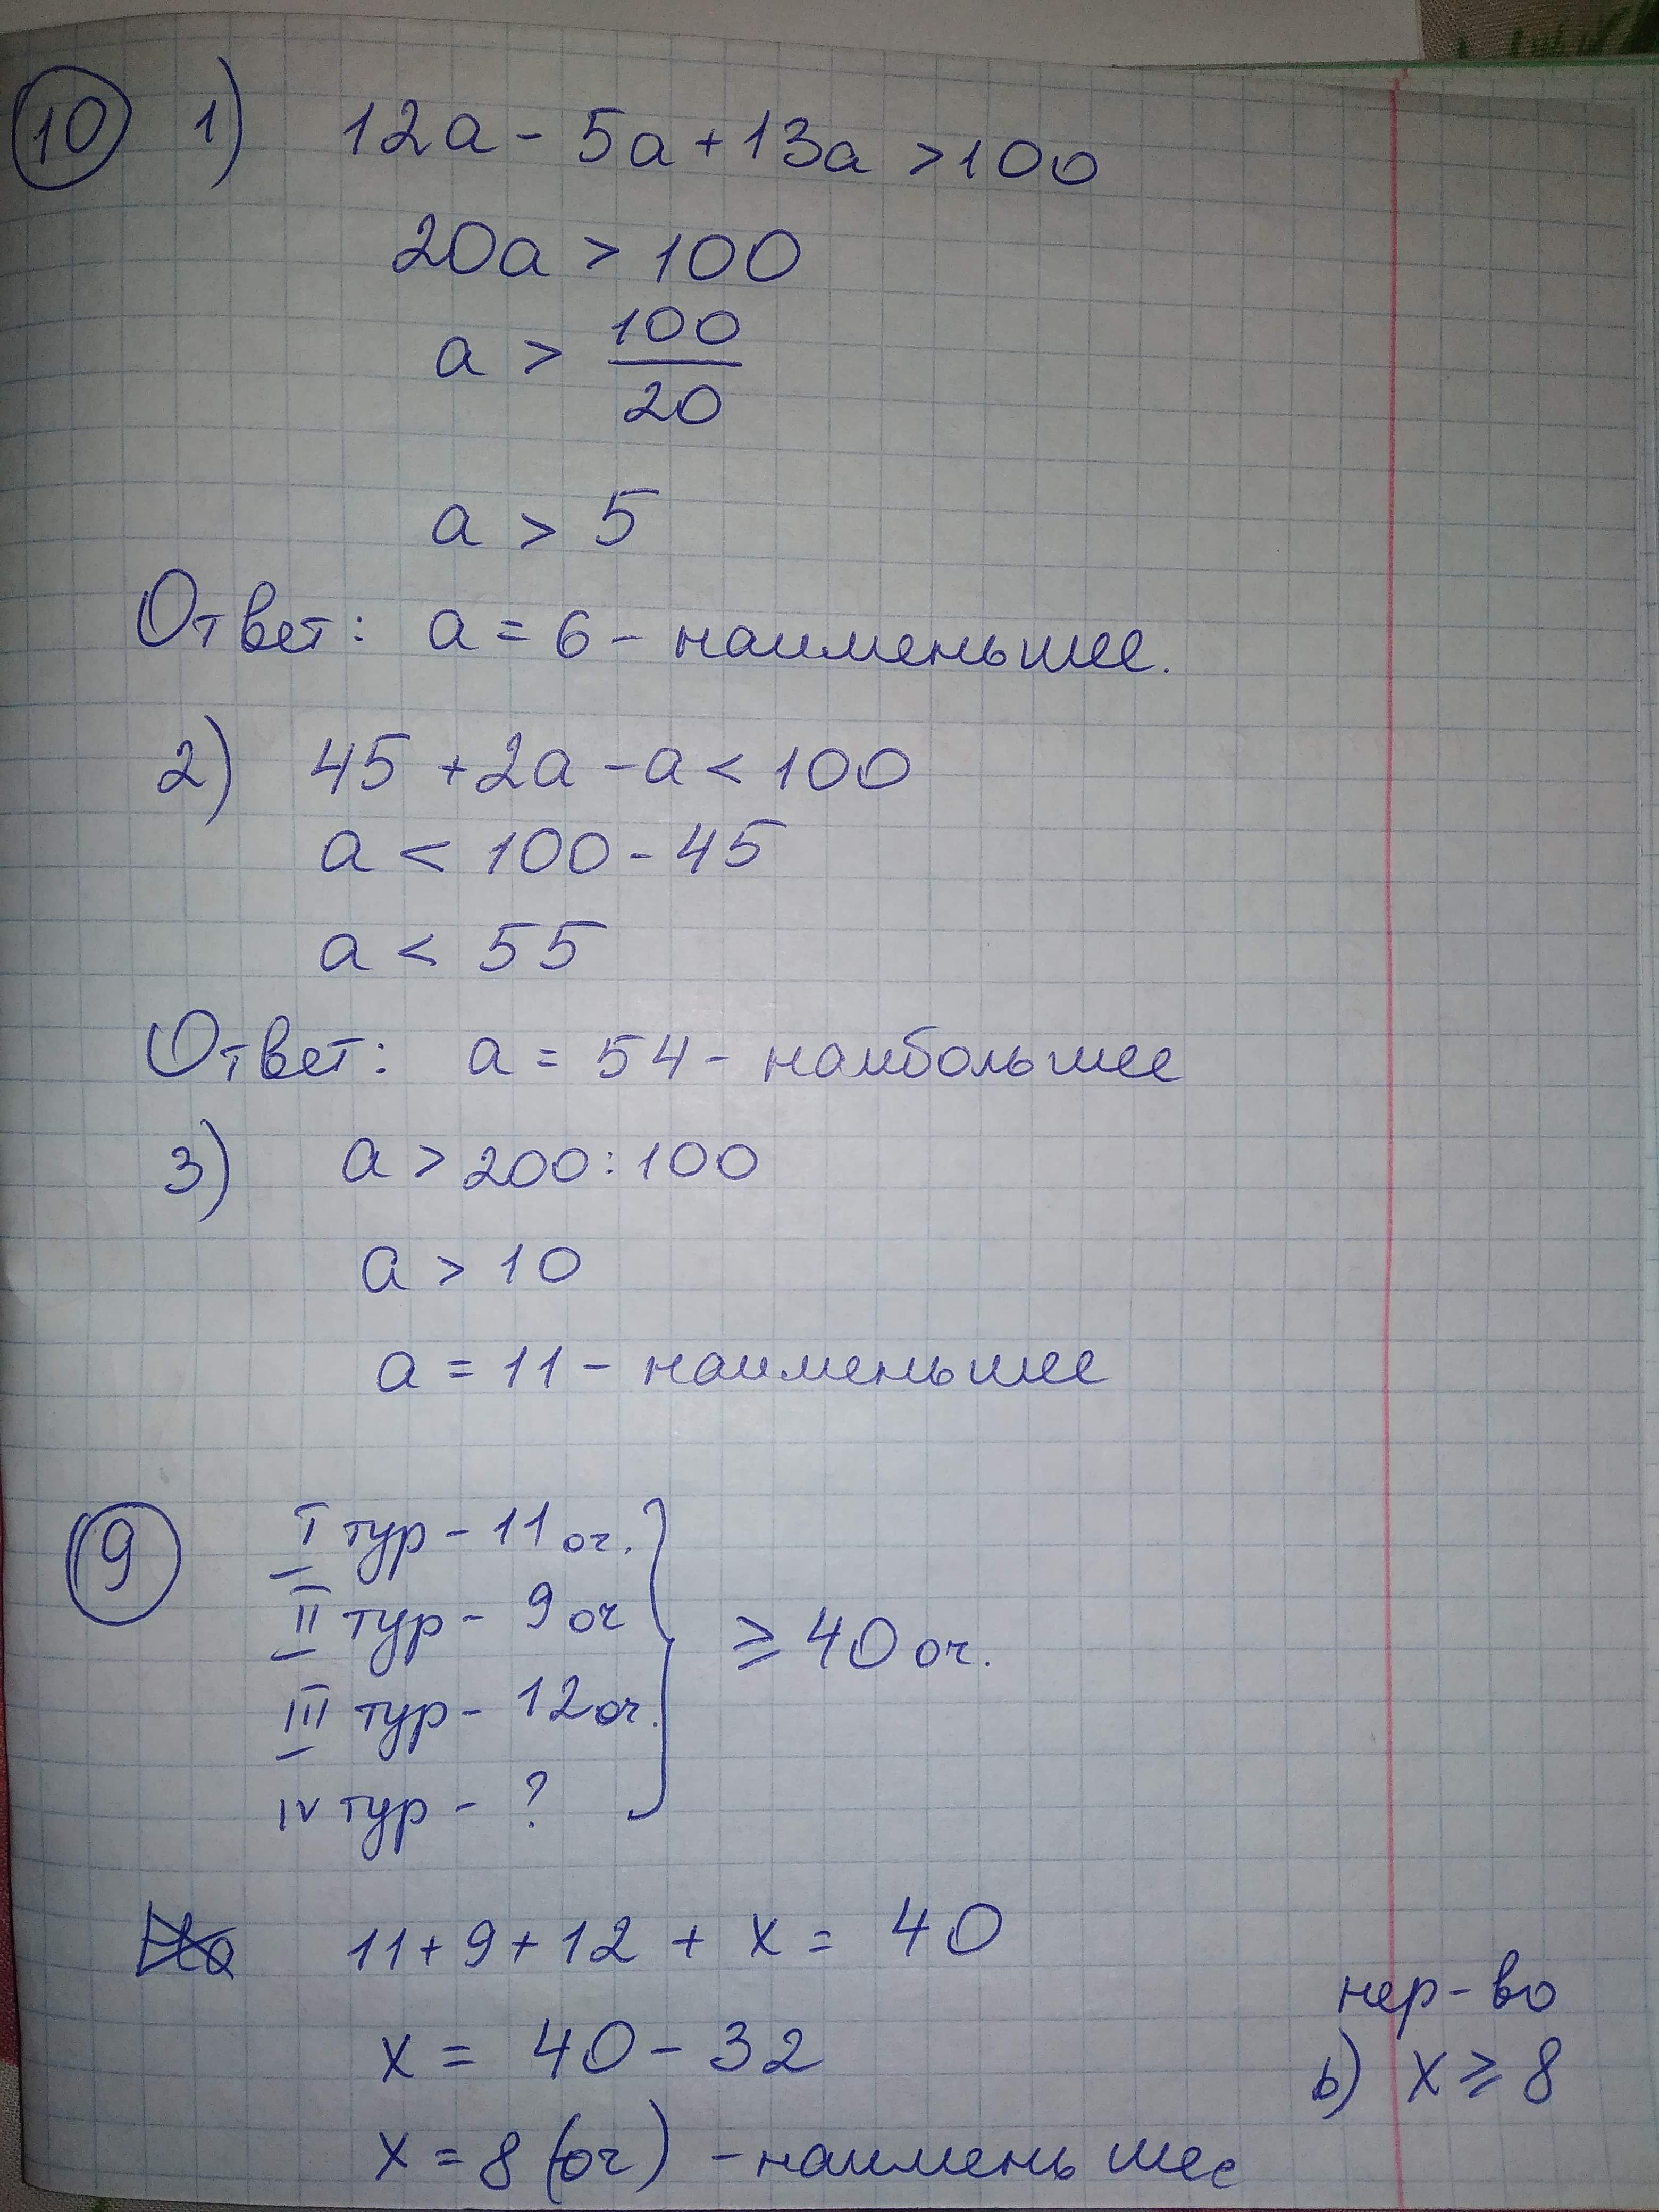 10 1) 12a - 5a + 13a > 100
20a > 100
a > 100/20
a > 5
Ответ: a = 6 - наименьшее.
2) 45 + 2a - a < 100
a < 100 - 45
a < 55
Ответ: a = 54 - наибольшее
3) a > 200 : 100
a > 10
a = 11 - наименьшее
9 I тур - 11 оч.
II тур - 9 оч
III тур - 12 оч.
IV тур - ?
≥ 40 оч.
11 + 9 + 12 + x = 40
x = 40 - 32
x = 8 (оч) - наименьшее
нер-во
b) x ≥ 8